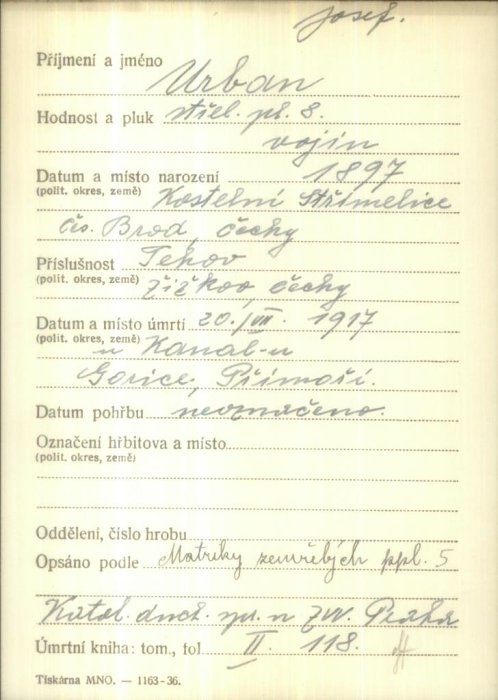 Josef.
Příjmení a jméno Urban
Hodnost a pluk střel. pl. 8.
vojín
Datum a místo narození 1897
(polit. okres, země) Kostelní Střimelice
Čes. Brod, Čechy
Příslušnost Tehov
(polit. okres, země) Žižkov, Čechy
Datum a místo úmrtí 20./VII. 1917
(polit. okres, země) u Kanal-u
Gorice, Přímoří.
Datum pohřbu neoznačeno.
Označení hřbitova a místo
(polit. okres, země)
Oddělení, číslo hrobu
Opsáno podle Matriky zemřelých ppl. 5
Katol. duch. spr. n ZVV. Praha
Úmrtní kniha: tom., fol. II. 118.
Tiskárna MNO. — 1163-36.